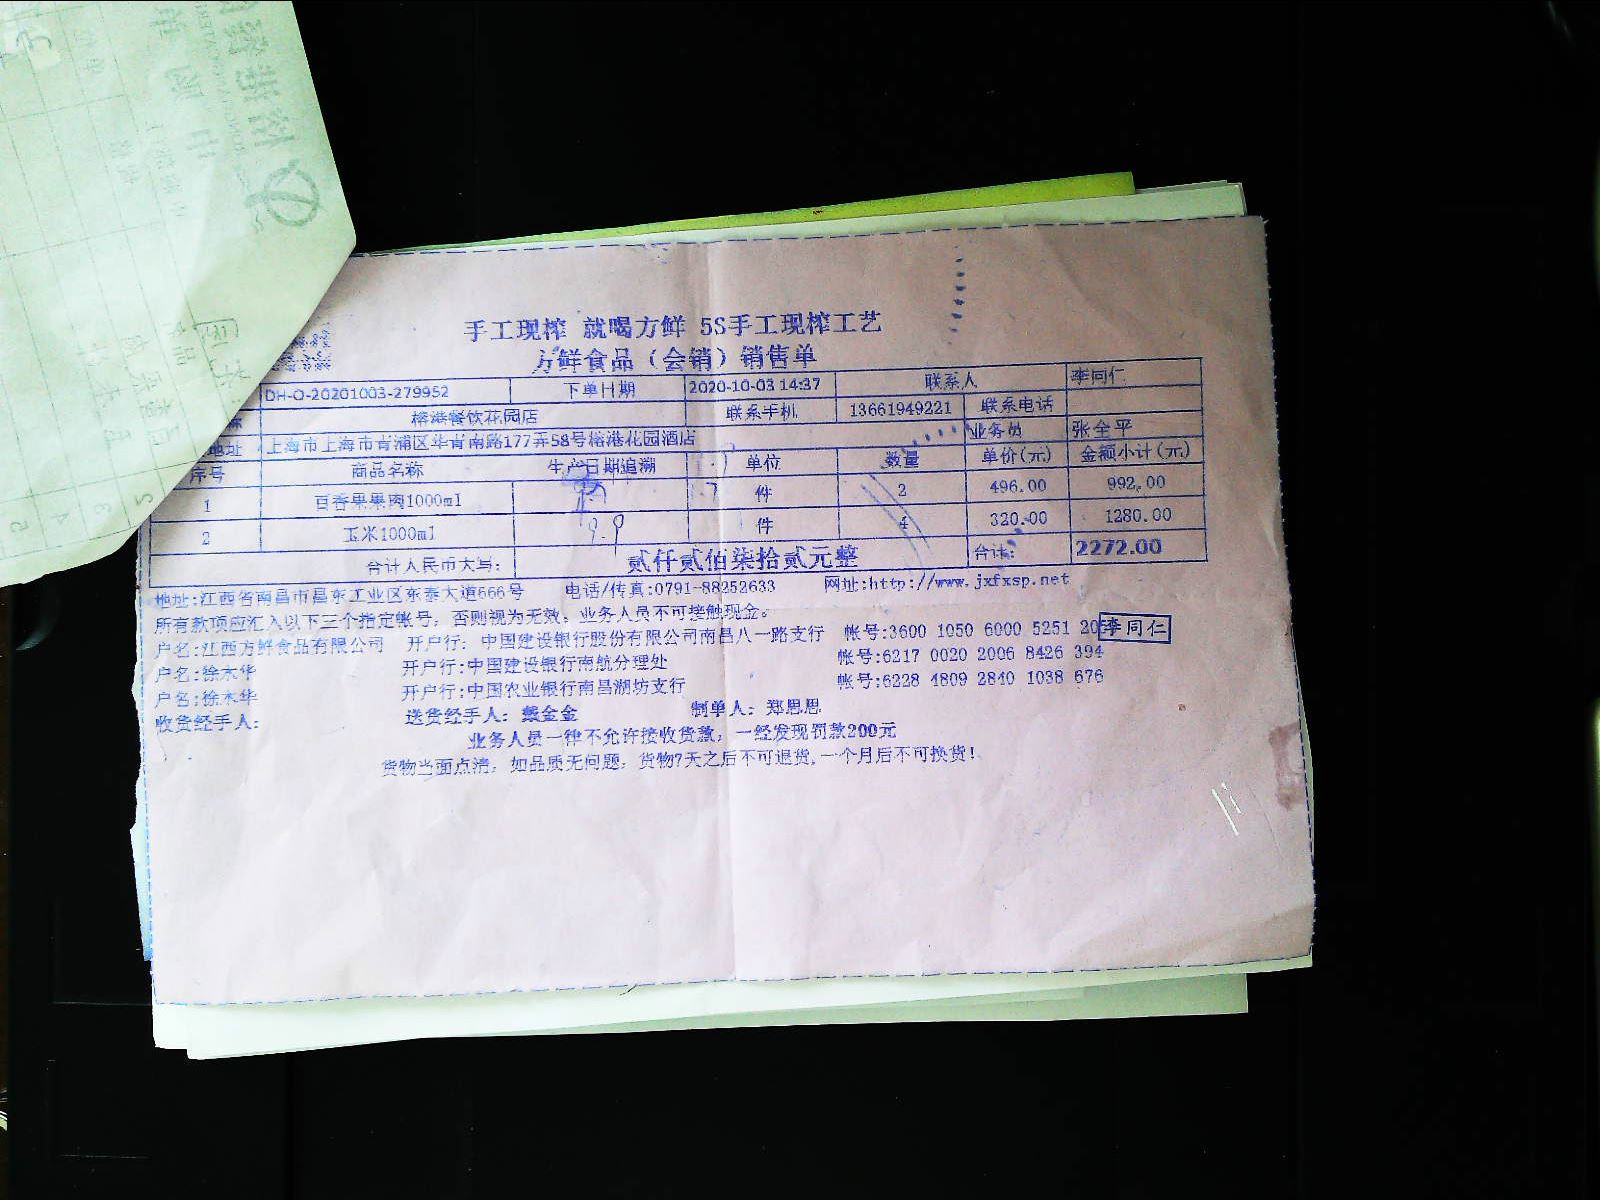 手工现榨 就喝方鲜 5S手工现榨工艺
方鲜食品（会销）销售单
DH-O-20201003-279952 下单日期 2020-10-03 14:37 联系人 李同仁
榕港餐饮花园店 联系手机 13661949221 联系电话
地址 上海市上海市青浦区华青南路177弄58号榕港花园酒店 业务员 张全平
序号 商品名称 生产日期追溯 单位 数量 单价(元) 金额小计(元)
1 百香果果肉1000ml 件 2 496.00 992.00
2 玉米1000ml 9.9 件 4 320.00 1280.00
合计人民币大写: 贰仟贰佰柒拾贰元整 合计: 2272.00
地址:江西省南昌市昌东工业区东泰大道666号 电话/传真:0791-88252633 网址:http://www.jxfxsp.net
所有款项应汇入以下三个指定帐号，否则视为无效，业务人员不可接触现金。
户名:江西方鲜食品有限公司 开户行: 中国建设银行股份有限公司南昌八一路支行 帐号:3600 1050 6000 5251 20 李同仁
户名:徐木华 开户行:中国建设银行南航分理处 帐号:6217 0020 2006 8426 394
户名:徐木华 开户行:中国农业银行南昌湖坊支行 帐号:6228 4809 2840 1038 676
收货经手人: 送货经手人: 戴金金 制单人: 郑思思
业务人员一律不允许接收货款，一经发现罚款200元
货物当面点清，如品质无问题，货物7天之后不可退货,一个月后不可换货!